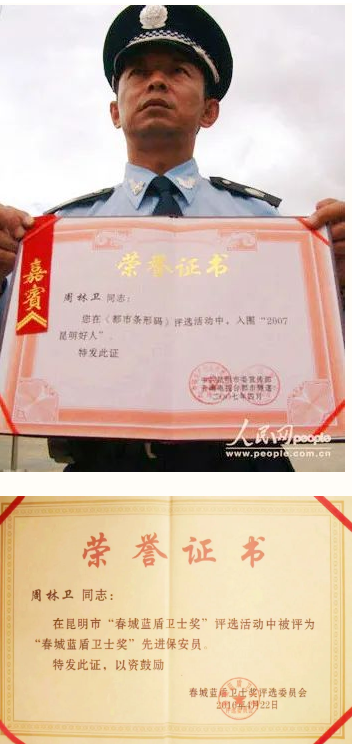 嘉賓
荣誉证书
周林卫 同志:
您在《都市条形码》评选活动中，入围“2007
昆明好人”。
特发此证
中共昆明市委宣传部
云南电视台都市频道
二00七年四月
人民网people
www.people.com.cn
荣誉证书
周林卫 同志:
在昆明市“春城蓝盾卫士奖”评选活动中被评为
“春城蓝盾卫士奖”先进保安员。
特发此证，以资鼓励
春城蓝盾卫士奖评选委员会
2010年4月22日